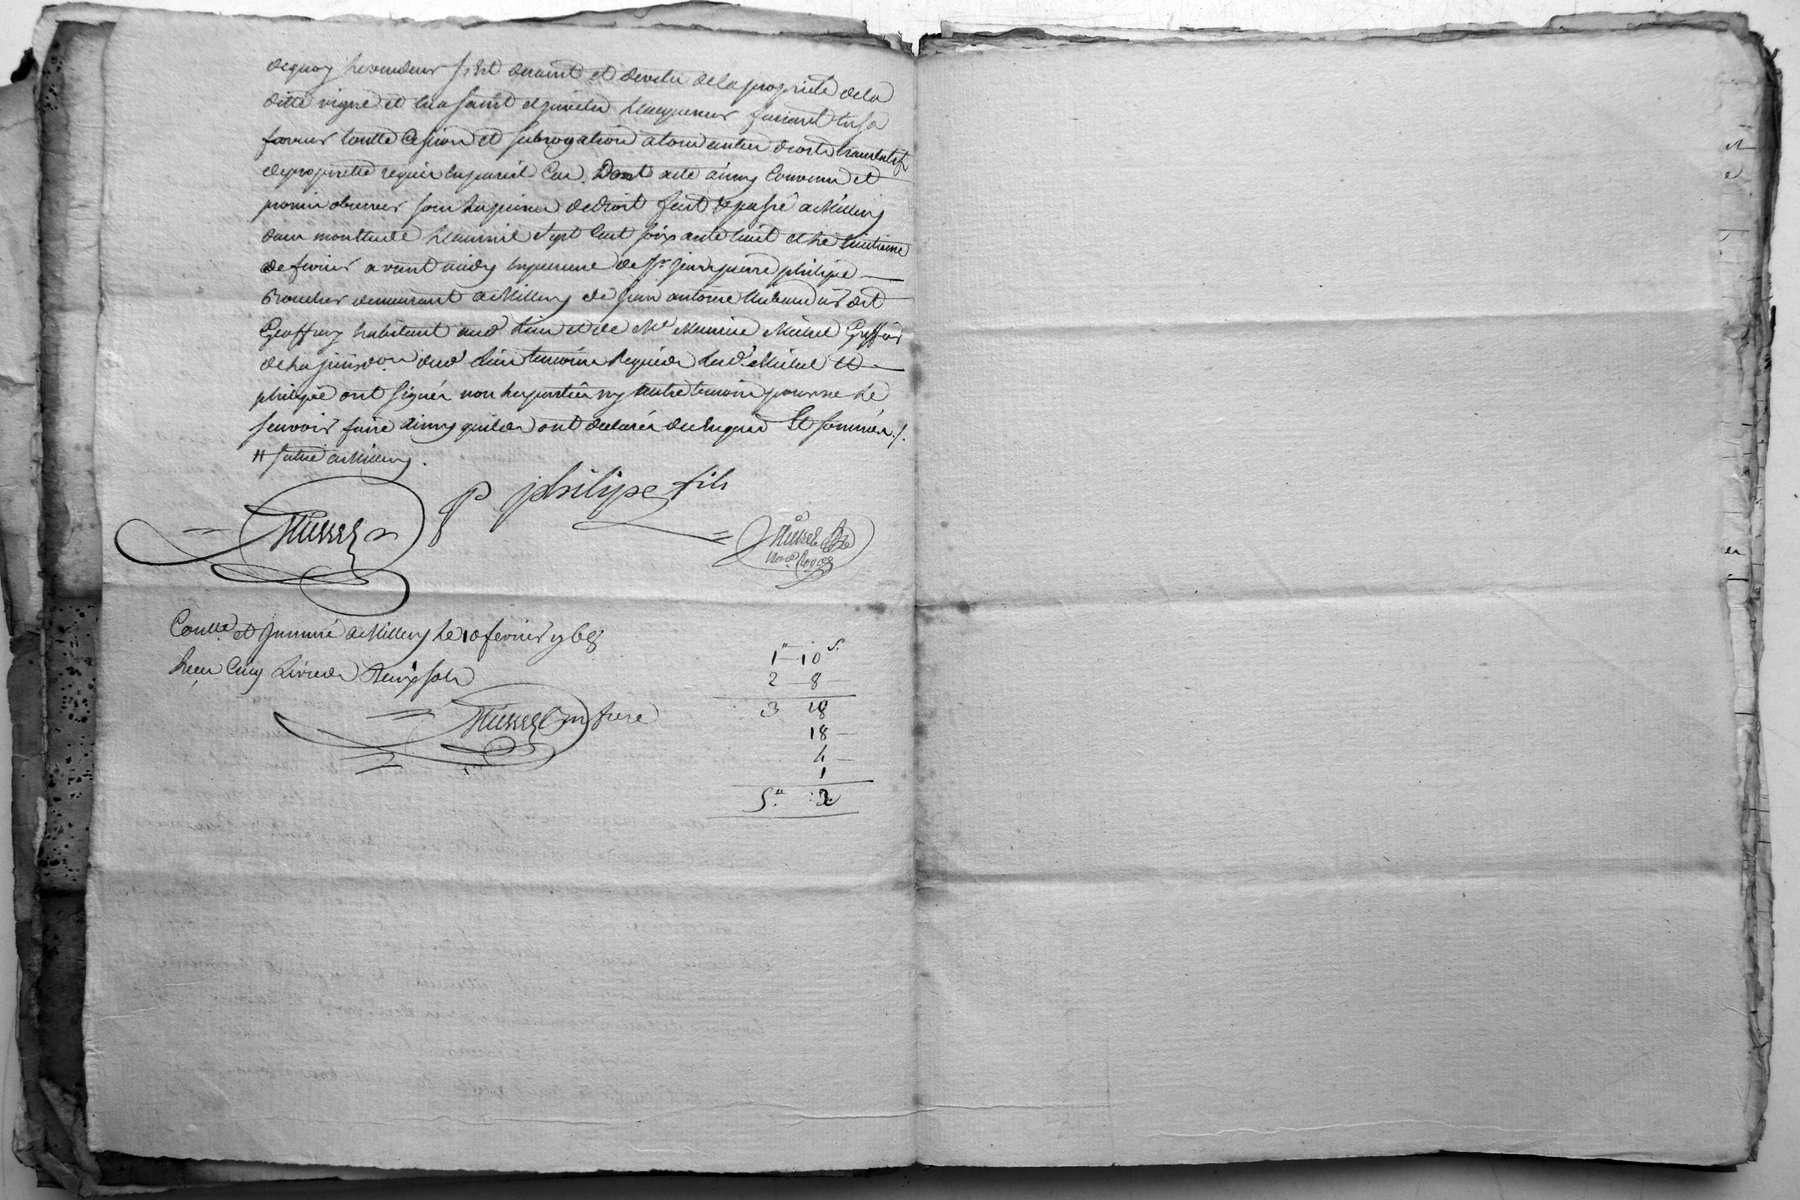 dequoy le vendeur s'est demit et devetu de la propriete de la
ditte vigne et en a saisit et invetu l'acquereur faisant en sa
faveur toutte cession et subrogation a tous autres droits translatifs
de propriete requis en pareil cas. Dont acte ainsy convenu et
promis observer sous les peines de droit fait et passé a Millery
dans mon etude l'an mil sept cent soixante huit et le huitieme
de fevrier avant midy en presence de sr jean pierre philipe
Boucher demeurant a Millery de jean antoine dit
Geoffray habitant aud. lieu et de Me Maurice Michel Greffier
de la jurisdon dud. lieu temoins requis led. Michel et
philipe ont signés non les parties ny l'autre temoin pour ne le
scavoir faire ainsy qu'ils ont declarés de ce enquis et sommés ./.
a Millery.
p philipe fils
Michel
Michel
Nore Royal
Contlé et Insinué a Millery le 10 fevrier 1768
Reçu Cinq Livres deux sols
1" 10 s.
2 8
3 18
18
4
1
5" 2
Michel frere